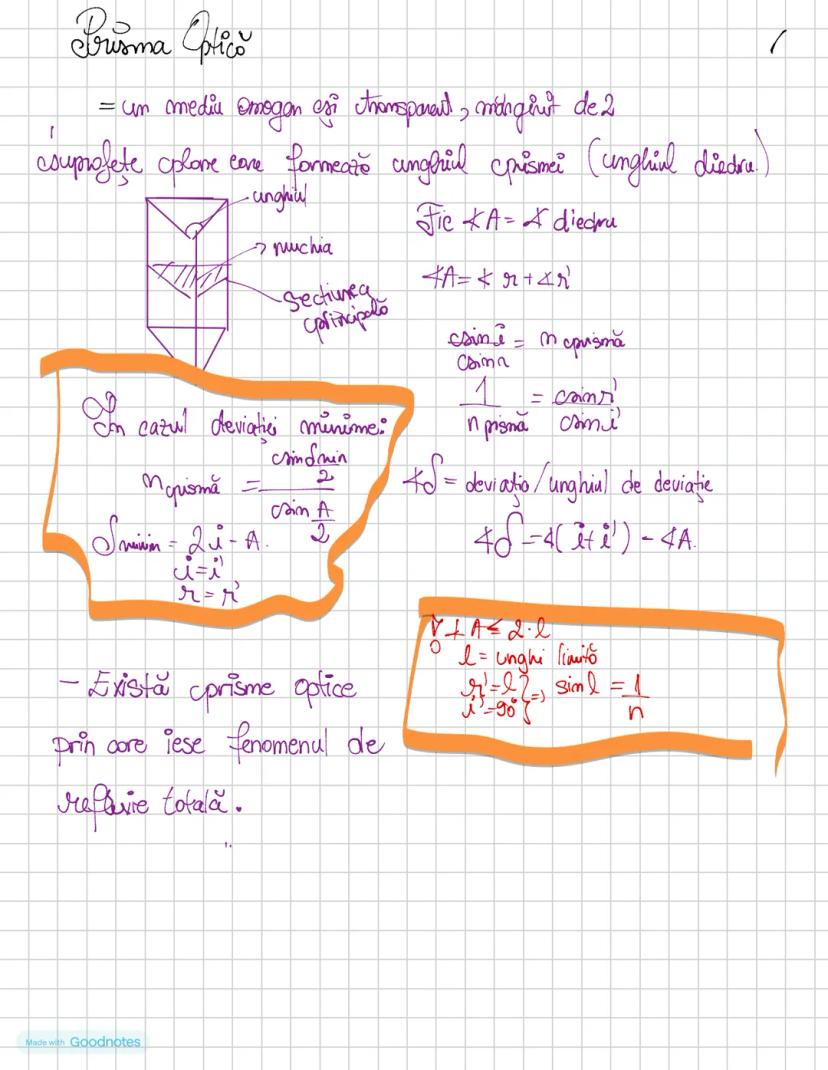 Prisma Optică
= un mediu omogen și transparent, mărginit de 2
suprafețe plane care formează unghiul prismei (unghiul diedru)
unghiul
nuchia
Secțiunea
principală
Fie ∢A = ∢ diedru
∢A = ∢ r + ∢r'
sin i / sin r = n prismă
1 / n prismă = sin r' / sin i'
∢δ = deviația/unghiul de deviație
∢δ = ∢(i + i') - ∢A.
În cazul deviației minime:
n prismă = sin δmin/2 / sin A/2
δminim = 2i - A.
i = i'
r = r'
∢ A ≤ 2·l
l = unghi limită
r' = l
i' = 90° } => sin l = 1/n
- Există prisme optice
prin care iese fenomenul de
reflexie totală.
Made with Goodnotes